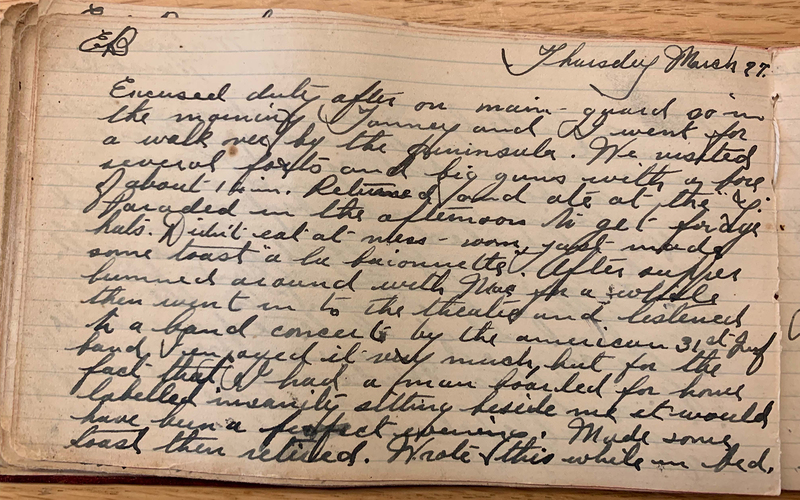 Thursday March 27.
Excused duty after on main-guard so in
the morning Tanney and I went for
a walk over by the peninsula. We visited
several forts and big guns with a bore
of about 12 in. Returned and ate at the "Y".
Paraded in the afternoon to get fridge
hats. Didn't eat at mess-room, just made
some toast "a la baionnette". After supper
bummed around with Mac for a while
then went in to the theatre and listened
to a band concert by the american 31st Inf
band I enjoyed it very much, but for the
fact that I had a man boarded for home
labelled insanity sitting beside me it would
have been a perfect evening. Made some
toast then retired. Wrote this while in bed.